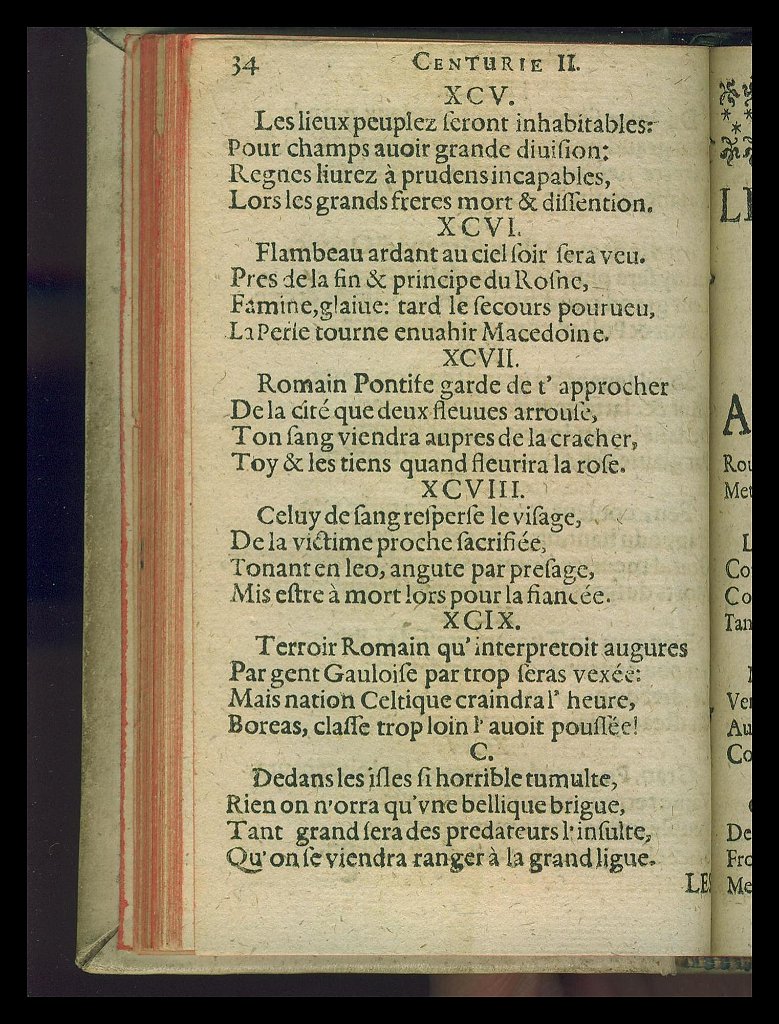 34 CENTURIE II.
XCV.
Les lieux peuplez ſeront inhabitables:
Pour champs auoir grande diuiſion:
Regnes liurez à prudens incapables,
Lors les grands freres mort & diſſention.
XCVI.
Flambeau ardant au ciel ſoir ſera veu.
Pres de la fin & principe du Roſne,
Famine, glaiue: tard le ſecours pourueu,
La Perſe tourne enuahir Macedoine.
XCVII.
Romain Pontife garde de t' approcher
De la cité que deux fleuues arrouſe,
Ton ſang viendra aupres de la cracher,
Toy & les tiens quand fleurira la roſe.
XCVIII.
Celuy de ſang reſperſe le viſage,
De la victime proche ſacrifiée,
Tonant en leo, angute par preſage,
Mis eſtre à mort lors pour la fiancée.
XCIX.
Terroir Romain qu' interpretoit augures
Par gent Gauloiſe par trop ſeras vexée:
Mais nation Celtique craindra l' heure,
Boreas, claſſe trop loin l' auoit pouſſée!
C.
Dedans les iſles ſi horrible tumulte,
Rien on n'orra qu'vne bellique brigue,
Tant grand ſera des predateurs l'inſulte,
Qu' on ſe viendra ranger à la grand ligue.
LES
LE
A
Rou
Met
L
Co
Co
Tan
Ver
Au
Co
De
Fro
Me